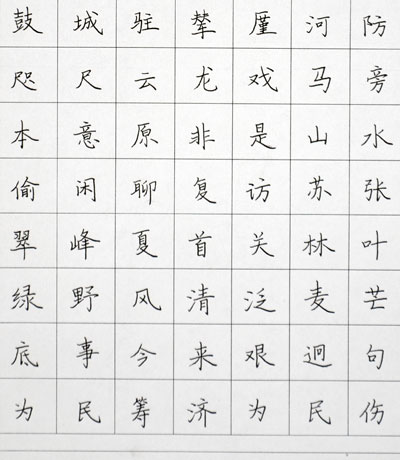 鼓城驻辇厪河防
咫尺云龙戏马旁
本意原非是山水
偷闲聊复访苏张
翠峰夏首关林叶
绿野风清泛麦芒
底事今来艰迥句
为民筹济为民伤